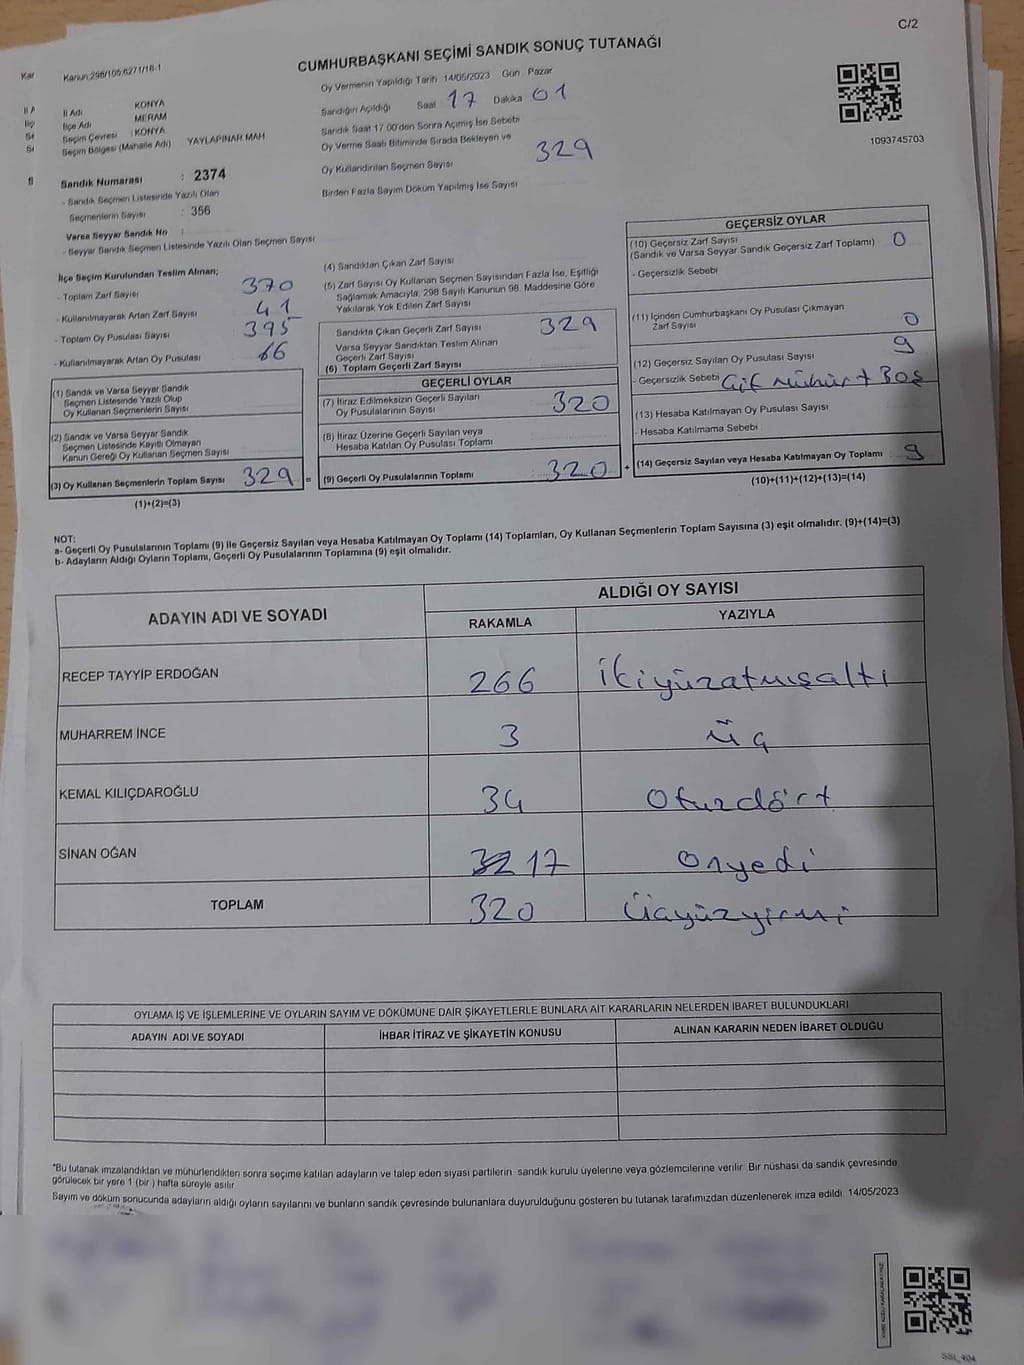 C/2
Kar
Kanun:298/105,6271/18-1
CUMHURBAŞKANI SEÇİMİ SANDIK SONUÇ TUTANAĞI
İl Adı KONYA
İlçe Adı MERAM
Seçim Çevresi : KONYA
Seçim Bölgesi (Mahalle Adı) YAYLAPINAR MAH
Sandık Numarası : 2374
- Sandık Seçmen Listesinde Yazılı Olan
Seçmenlerin Sayısı : 356
Varsa Seyyar Sandık No :
- Seyyar Sandık Seçmen Listesinde Yazılı Olan Seçmen Sayısı
Oy Vermenin Yapıldığı Tarih 14/05/2023 Gün Pazar
Sandığın Açıldığı Saat 17 Dakika 01
Sandık Saat 17.00'den Sonra Açılmış İse Sebebi
Oy Verme Saati Bitiminde Sırada Bekleyen ve
Oy Kullandırılan Seçmen Sayısı 329
Birden Fazla Sayım Döküm Yapılmış İse Sayısı
1093745703
İlçe Seçim Kurulundan Teslim Alınan;
- Toplam Zarf Sayısı 370
- Kullanılmayarak Artan Zarf Sayısı 41
- Toplam Oy Pusulası Sayısı 395
- Kullanılmayarak Artan Oy Pusulası 66
(1) Sandık ve Varsa Seyyar Sandık
Seçmen Listesinde Yazılı Olup
Oy Kullanan Seçmenlerin Sayısı
(2) Sandık ve Varsa Seyyar Sandık
Seçmen Listesinde Kayıtlı Olmayan
Kanun Gereği Oy Kullanan Seçmen Sayısı
(3) Oy Kullanan Seçmenlerin Toplam Sayısı 329 =
(1)+(2)=(3)
(4) Sandıktan Çıkan Zarf Sayısı
(5) Zarf Sayısı Oy Kullanan Seçmen Sayısından Fazla İse, Eşitliği
Sağlamak Amacıyla, 298 Sayılı Kanunun 98. Maddesine Göre
Yakılarak Yok Edilen Zarf Sayısı
Sandıkta Çıkan Geçerli Zarf Sayısı 329
Varsa Seyyar Sandıktan Teslim Alınan
Geçerli Zarf Sayısı
(6) Toplam Geçerli Zarf Sayısı
GEÇERLİ OYLAR
(7) İtiraz Edilmeksizin Geçerli Sayılan
Oy Pusulalarının Sayısı 320
(8) İtiraz Üzerine Geçerli Sayılan veya
Hesaba Katılan Oy Pusulası Toplamı
(9) Geçerli Oy Pusulalarının Toplamı 320 +
GEÇERSİZ OYLAR
(10) Geçersiz Zarf Sayısı
(Sandık ve Varsa Seyyar Sandık Geçersiz Zarf Toplamı) 0
- Geçersizlik Sebebi
(11) İçinden Cumhurbaşkanı Oy Pusulası Çıkmayan
Zarf Sayısı 0
(12) Geçersiz Sayılan Oy Pusulası Sayısı 9
- Geçersizlik Sebebi Çift Mühür + Boş
(13) Hesaba Katılmayan Oy Pusulası Sayısı
- Hesaba Katılmama Sebebi
(14) Geçersiz Sayılan veya Hesaba Katılmayan Oy Toplamı 9
(10)+(11)+(12)+(13)=(14)
NOT:
a- Geçerli Oy Pusulalarının Toplamı (9) ile Geçersiz Sayılan veya Hesaba Katılmayan Oy Toplamı (14) Toplamları, Oy Kullanan Seçmenlerin Toplam Sayısına (3) eşit olmalıdır. (9)+(14)=(3)
b- Adayların Aldığı Oyların Toplamı, Geçerli Oy Pusulalarının Toplamına (9) eşit olmalıdır.
ADAYIN ADI VE SOYADI ALDIĞI OY SAYISI
RAKAMLA YAZIYLA
RECEP TAYYİP ERDOĞAN 266 ikiyüzatmışaltı
MUHARREM İNCE 3 üç
KEMAL KILIÇDAROĞLU 34 Otuzdört
SİNAN OĞAN 17 Onyedi
TOPLAM 320 Üçyüzyirmi
OYLAMA İŞ VE İŞLEMLERİNE VE OYLARIN SAYIM VE DÖKÜMÜNE DAİR ŞİKAYETLERLE BUNLARA AİT KARARLARIN NELERDEN İBARET BULUNDUKLARI
ADAYIN ADI VE SOYADI İHBAR İTİRAZ VE ŞİKAYETİN KONUSU ALINAN KARARIN NEDEN İBARET OLDUĞU
*Bu tutanak imzalandıktan ve mühürlendikten sonra seçime katılan adayların ve talep eden siyasi partilerin sandık kurulu üyelerine veya gözlemcilerine verilir. Bir nüshası da sandık çevresinde
görülecek bir yere 1 (bir ) hafta süreyle asılır.
Sayım ve döküm sonucunda adayların aldığı oyların sayılarını ve bunların sandık çevresinde bulunanlara duyurulduğunu gösteren bu tutanak tarafımızdan düzenlenerek imza edildi. 14/05/2023